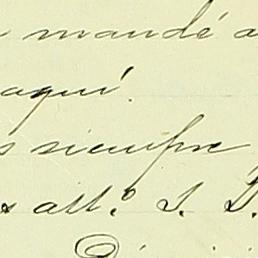 mandé a
aquí.
siempre
att.º S. S.